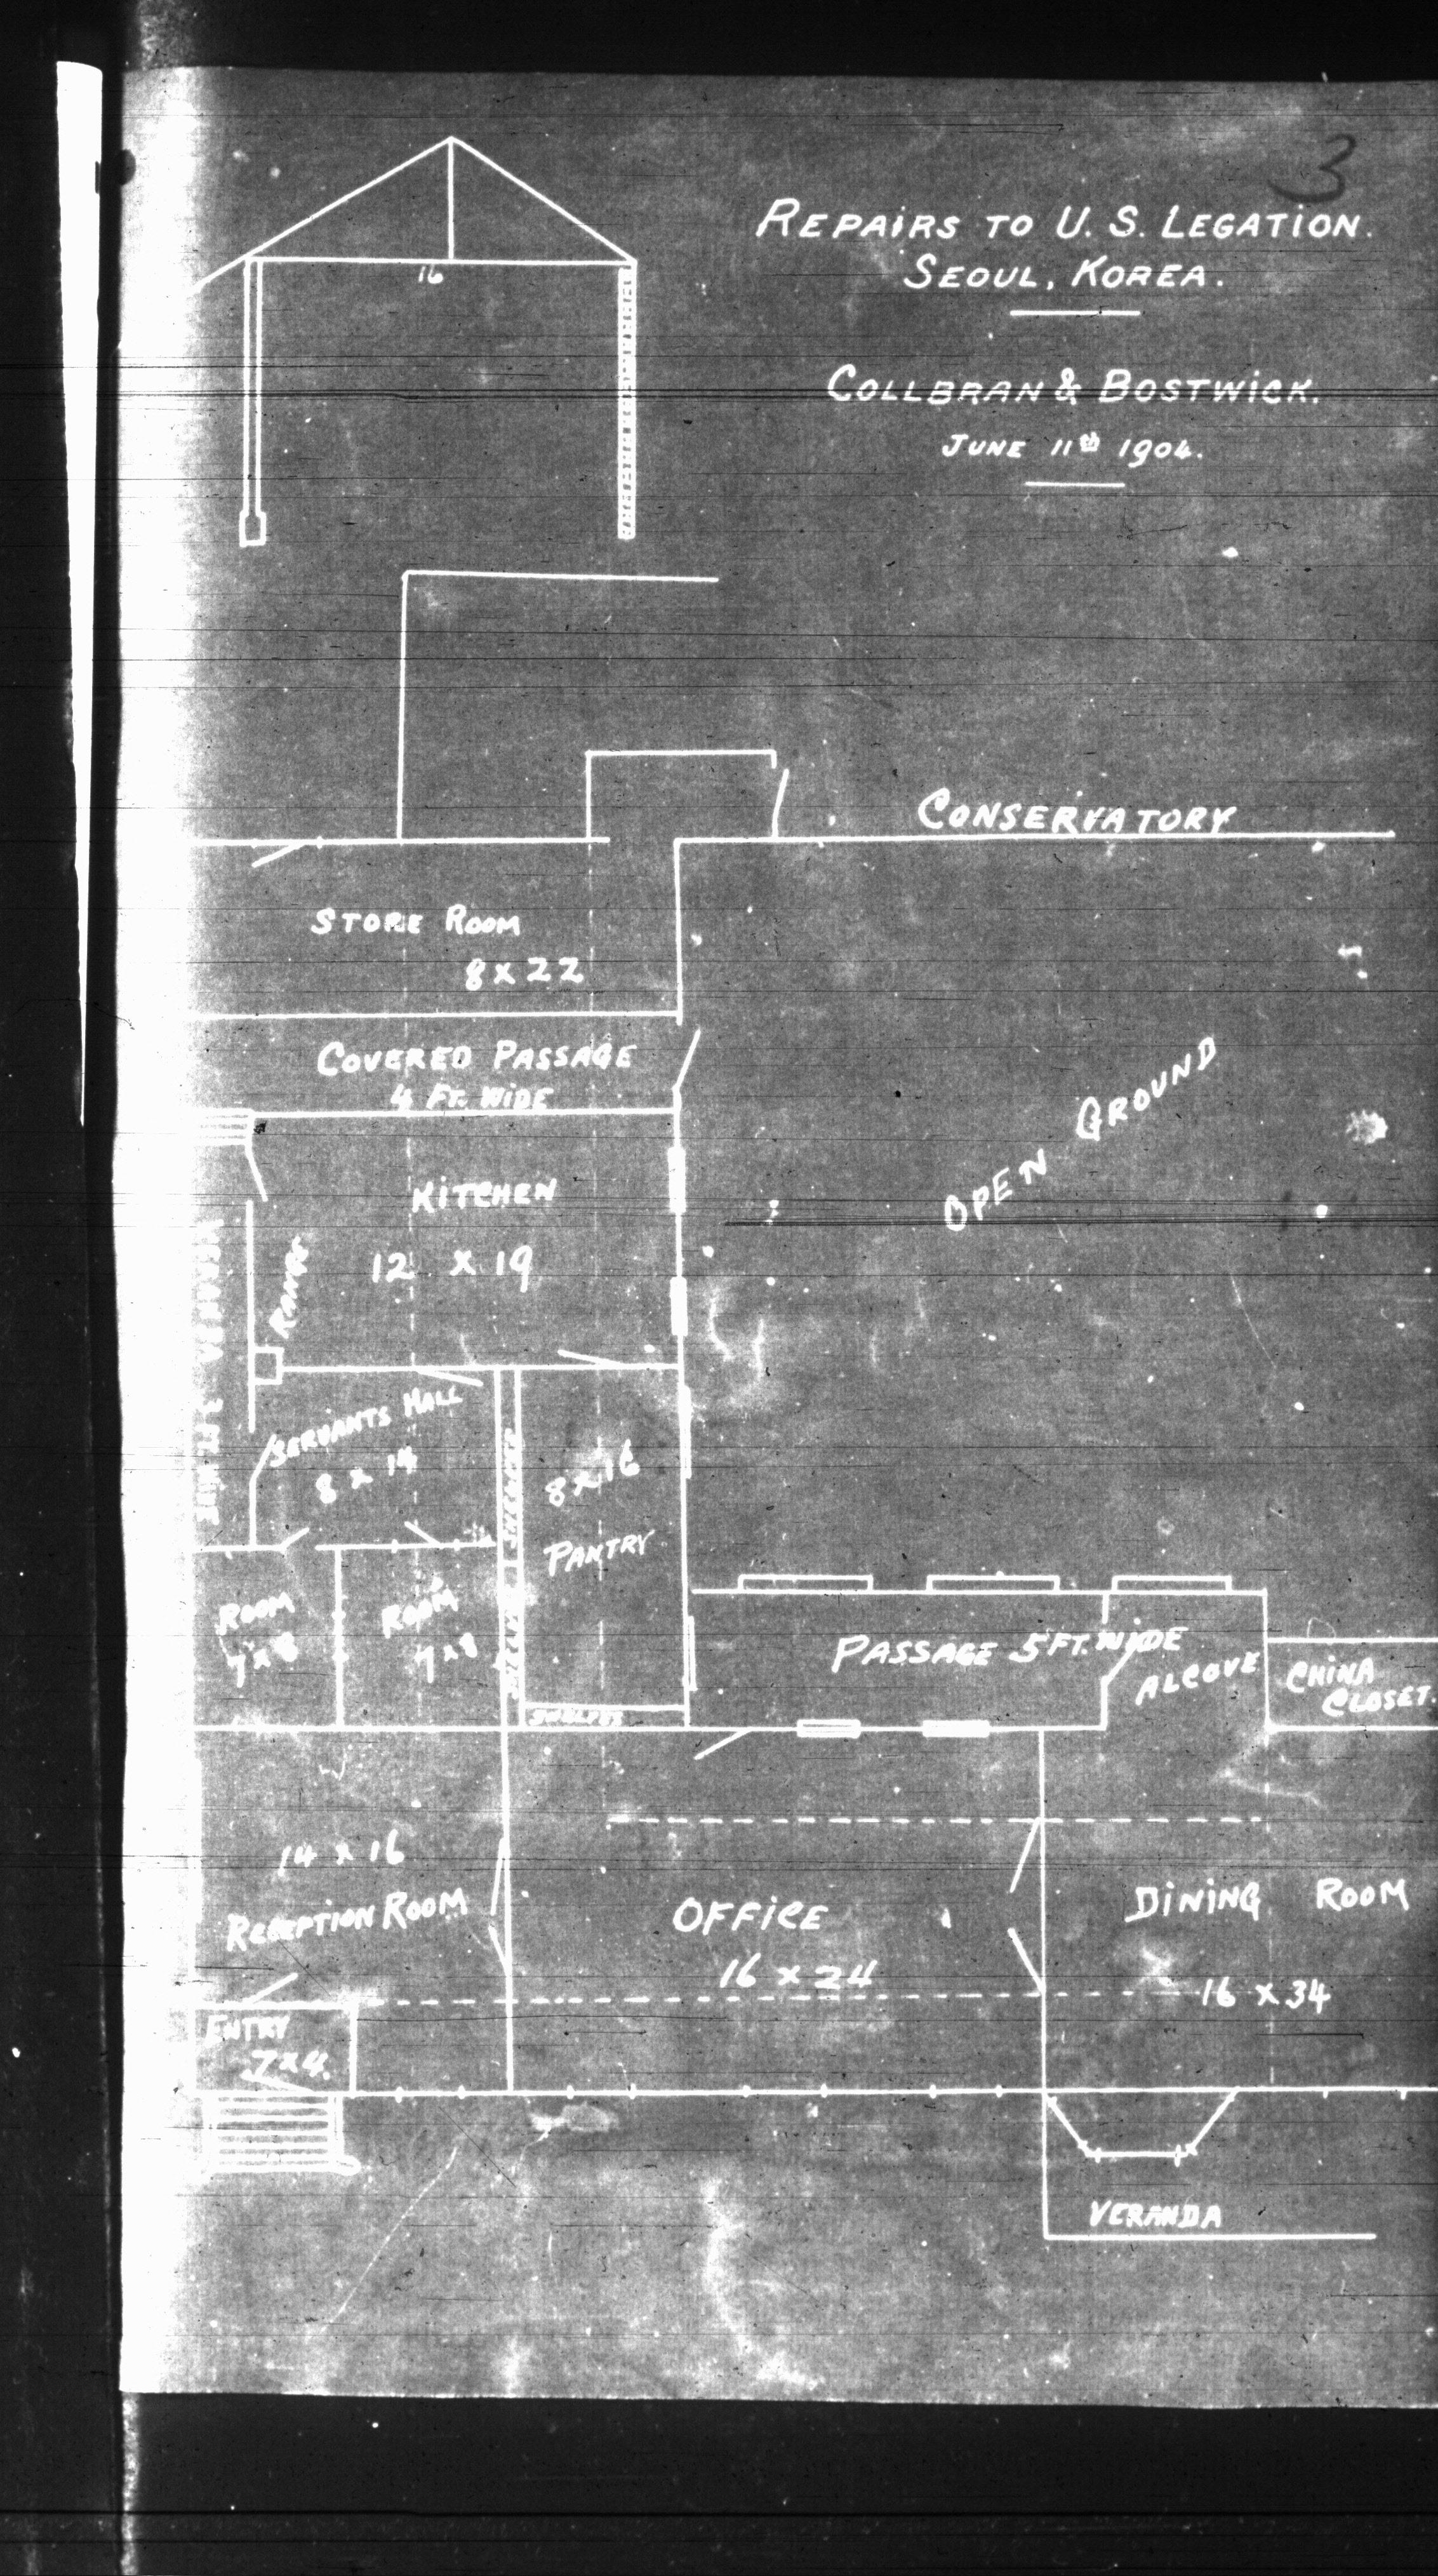 3
REPAIRS TO U. S. LEGATION.
SEOUL, KOREA.
COLLBRAN & BOSTWICK.
JUNE 11th 1904.
16
CONSERVATORY
STORE ROOM
8 x 22
COVERED PASSAGE
4 FT. WIDE
OPEN GROUND
KITCHEN
12 x 19
RANGE
VERANDA 3 FT. WIDE
SERVANTS HALL
8 x 14
SHELVES
8 x 16
PANTRY
ROOM
7 x 8
ROOM
7 x 8
SHELVES
PASSAGE 5 FT. WIDE
ALCOVE
CHINA
CLOSET.
14 x 16
RECEPTION ROOM
OFFICE
16 x 24
DINING ROOM
16 x 34
ENTRY
7 x 4.
VERANDA